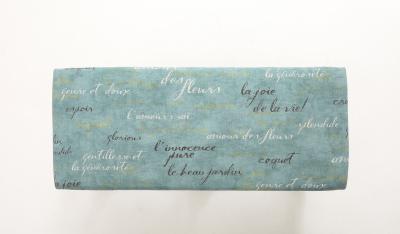 amour
la générosité
des
fleurs
genre et doux
la joie
espoir
de la vie!
l'amour vrai
splendide
glorious
amour des fleurs
l'innocence
pure
gentillesse et
coquet
la générosité
le beau jardin
joie
genre et doux